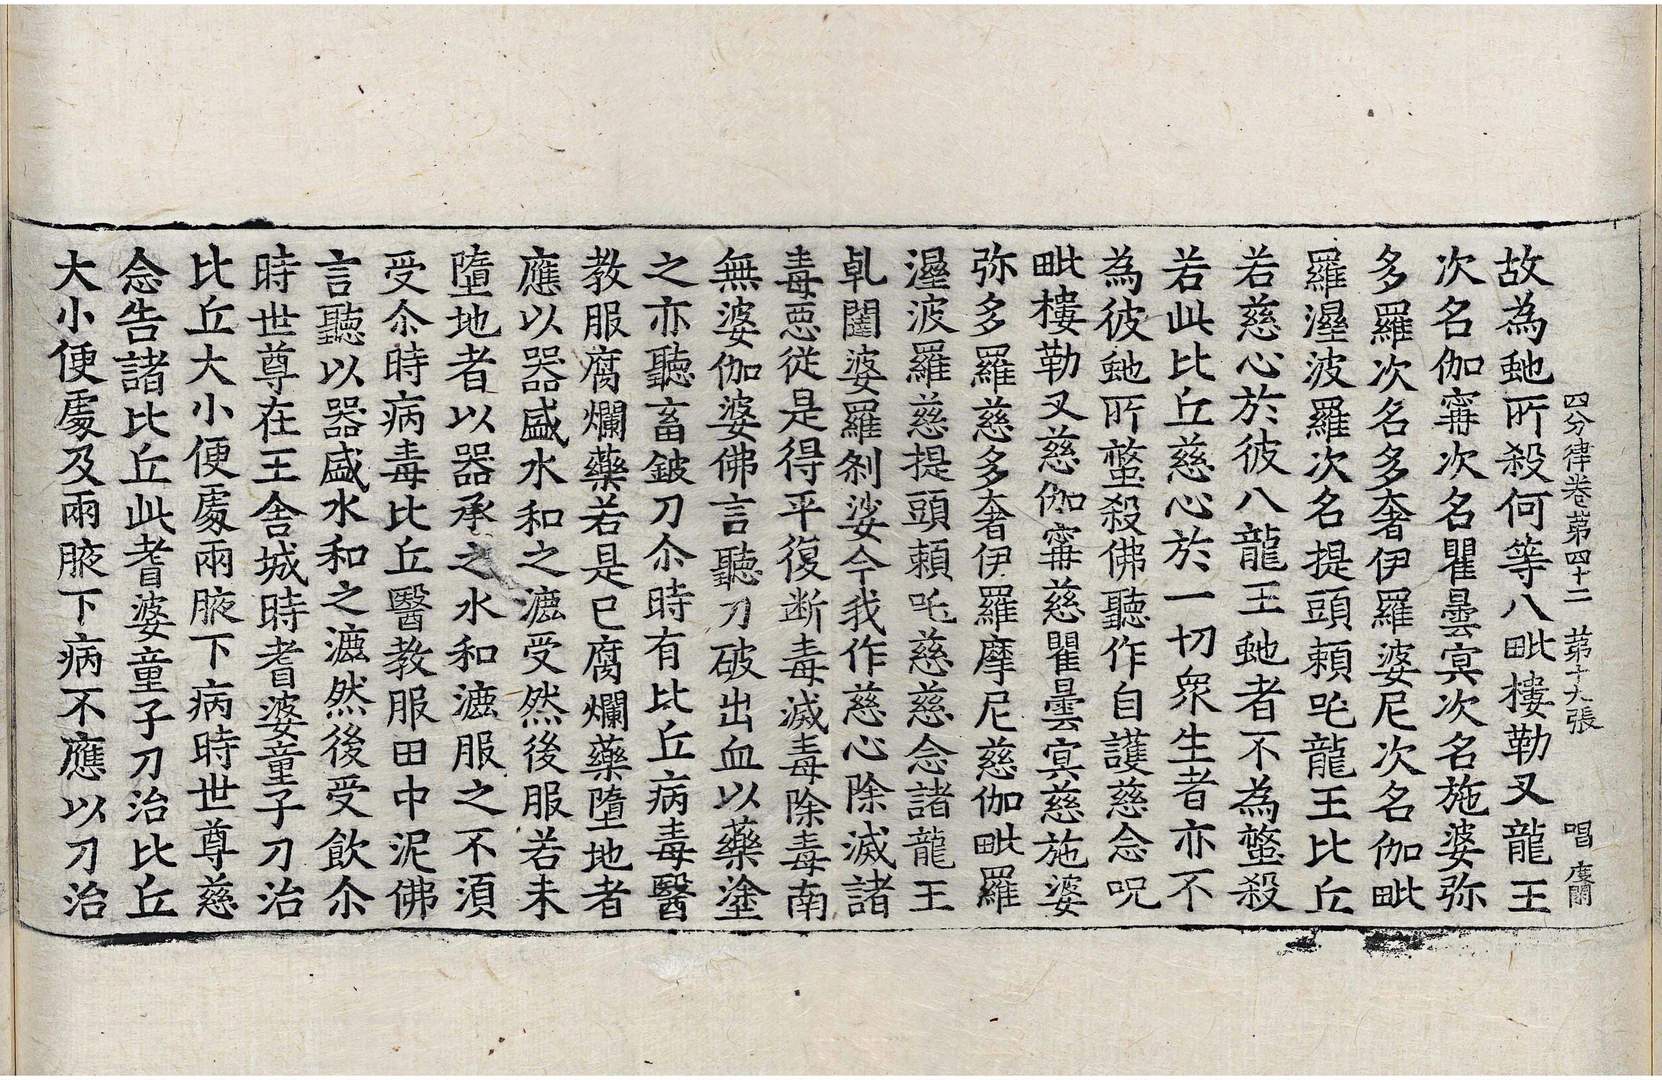 四分律卷苐四十二 苐十九張 唱 度關
故為虵所殺何等八毗樓勒叉龍王
次名伽寗次名瞿曇冥次名施婆弥
多羅次名多奢伊羅婆尼次名伽毗
羅濕波羅次名提頭賴吒龍王比丘
若慈心於彼八龍王虵者不為螫殺
若此比丘慈心於一切衆生者亦不
為彼虵所螫殺佛聽作自護慈念呪
毗樓勒叉慈伽寗慈瞿曇冥慈施婆
弥多羅慈多奢伊羅摩尼慈伽毗羅
濕波羅慈提頭賴吒慈慈念諸龍王
乹闥婆羅刹娑今我作慈心除滅諸
毒惡從是得平復断毒滅毒除毒南
無婆伽婆佛言聽刀破出血以藥塗
之亦聽畜鈹刀尒時有比丘病毒醫
教服腐爛藥若是已腐爛藥墮地者
應以器盛水和之漉受然後服若未
墮地者以器承之水和漉服之不須
受尒時病毒比丘醫教服田中泥佛
言聽以器盛水和之漉然後受飲尒
時世尊在王舍城時耆婆童子刀治
比丘大小便處兩腋下病時世尊慈
念告諸比丘此耆婆童子刀治比丘
大小便處及兩腋下病不應以刀治